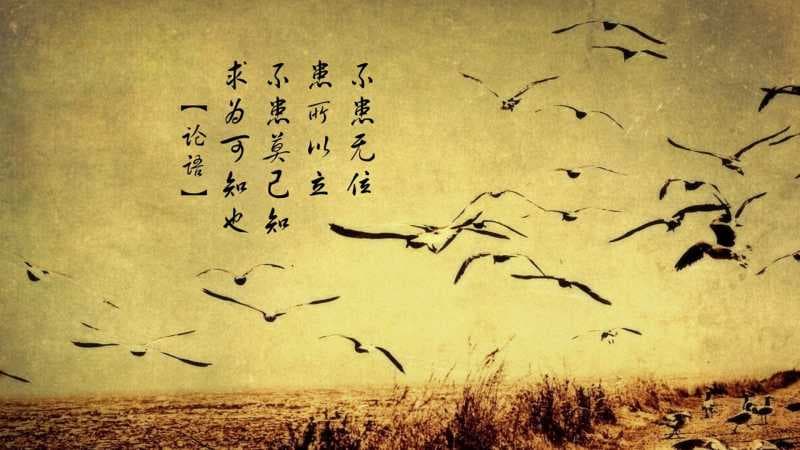 不患无位
患所以立
不患莫己知
求为可知也
【论语】